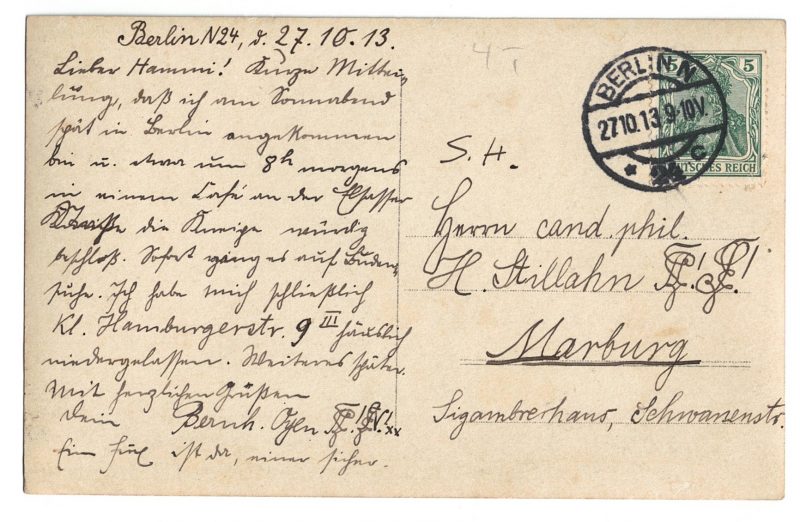 Berlin N24, d. 27.10.13.
Lieber Hammi! Kurze Mittei-
lung, daß ich am Sonnabend
spät in Berlin angekommen
bin u. etwa um 8h morgens
in einem Café an der Elsasser
Straße die Kneipe würdig
beschloß. Sofort ging es auf Buden-
suche. Ich habe mich schließlich
Kl. Hamburgerstr. 9 III häuslich
niedergelassen. Weiteres später.
Mit herzlichen Grüßen
Dein Bernh. xx
Ein Fux ist da, einer sicher.
4
BERLIN N
27.10.13.9-10V.
* 24 c
5 5
DEUTSCHES REICH
S. H.
Herrn cand. phil.
H. Stillahn
Marburg
Sigambrerhaus, Schwanenstr.